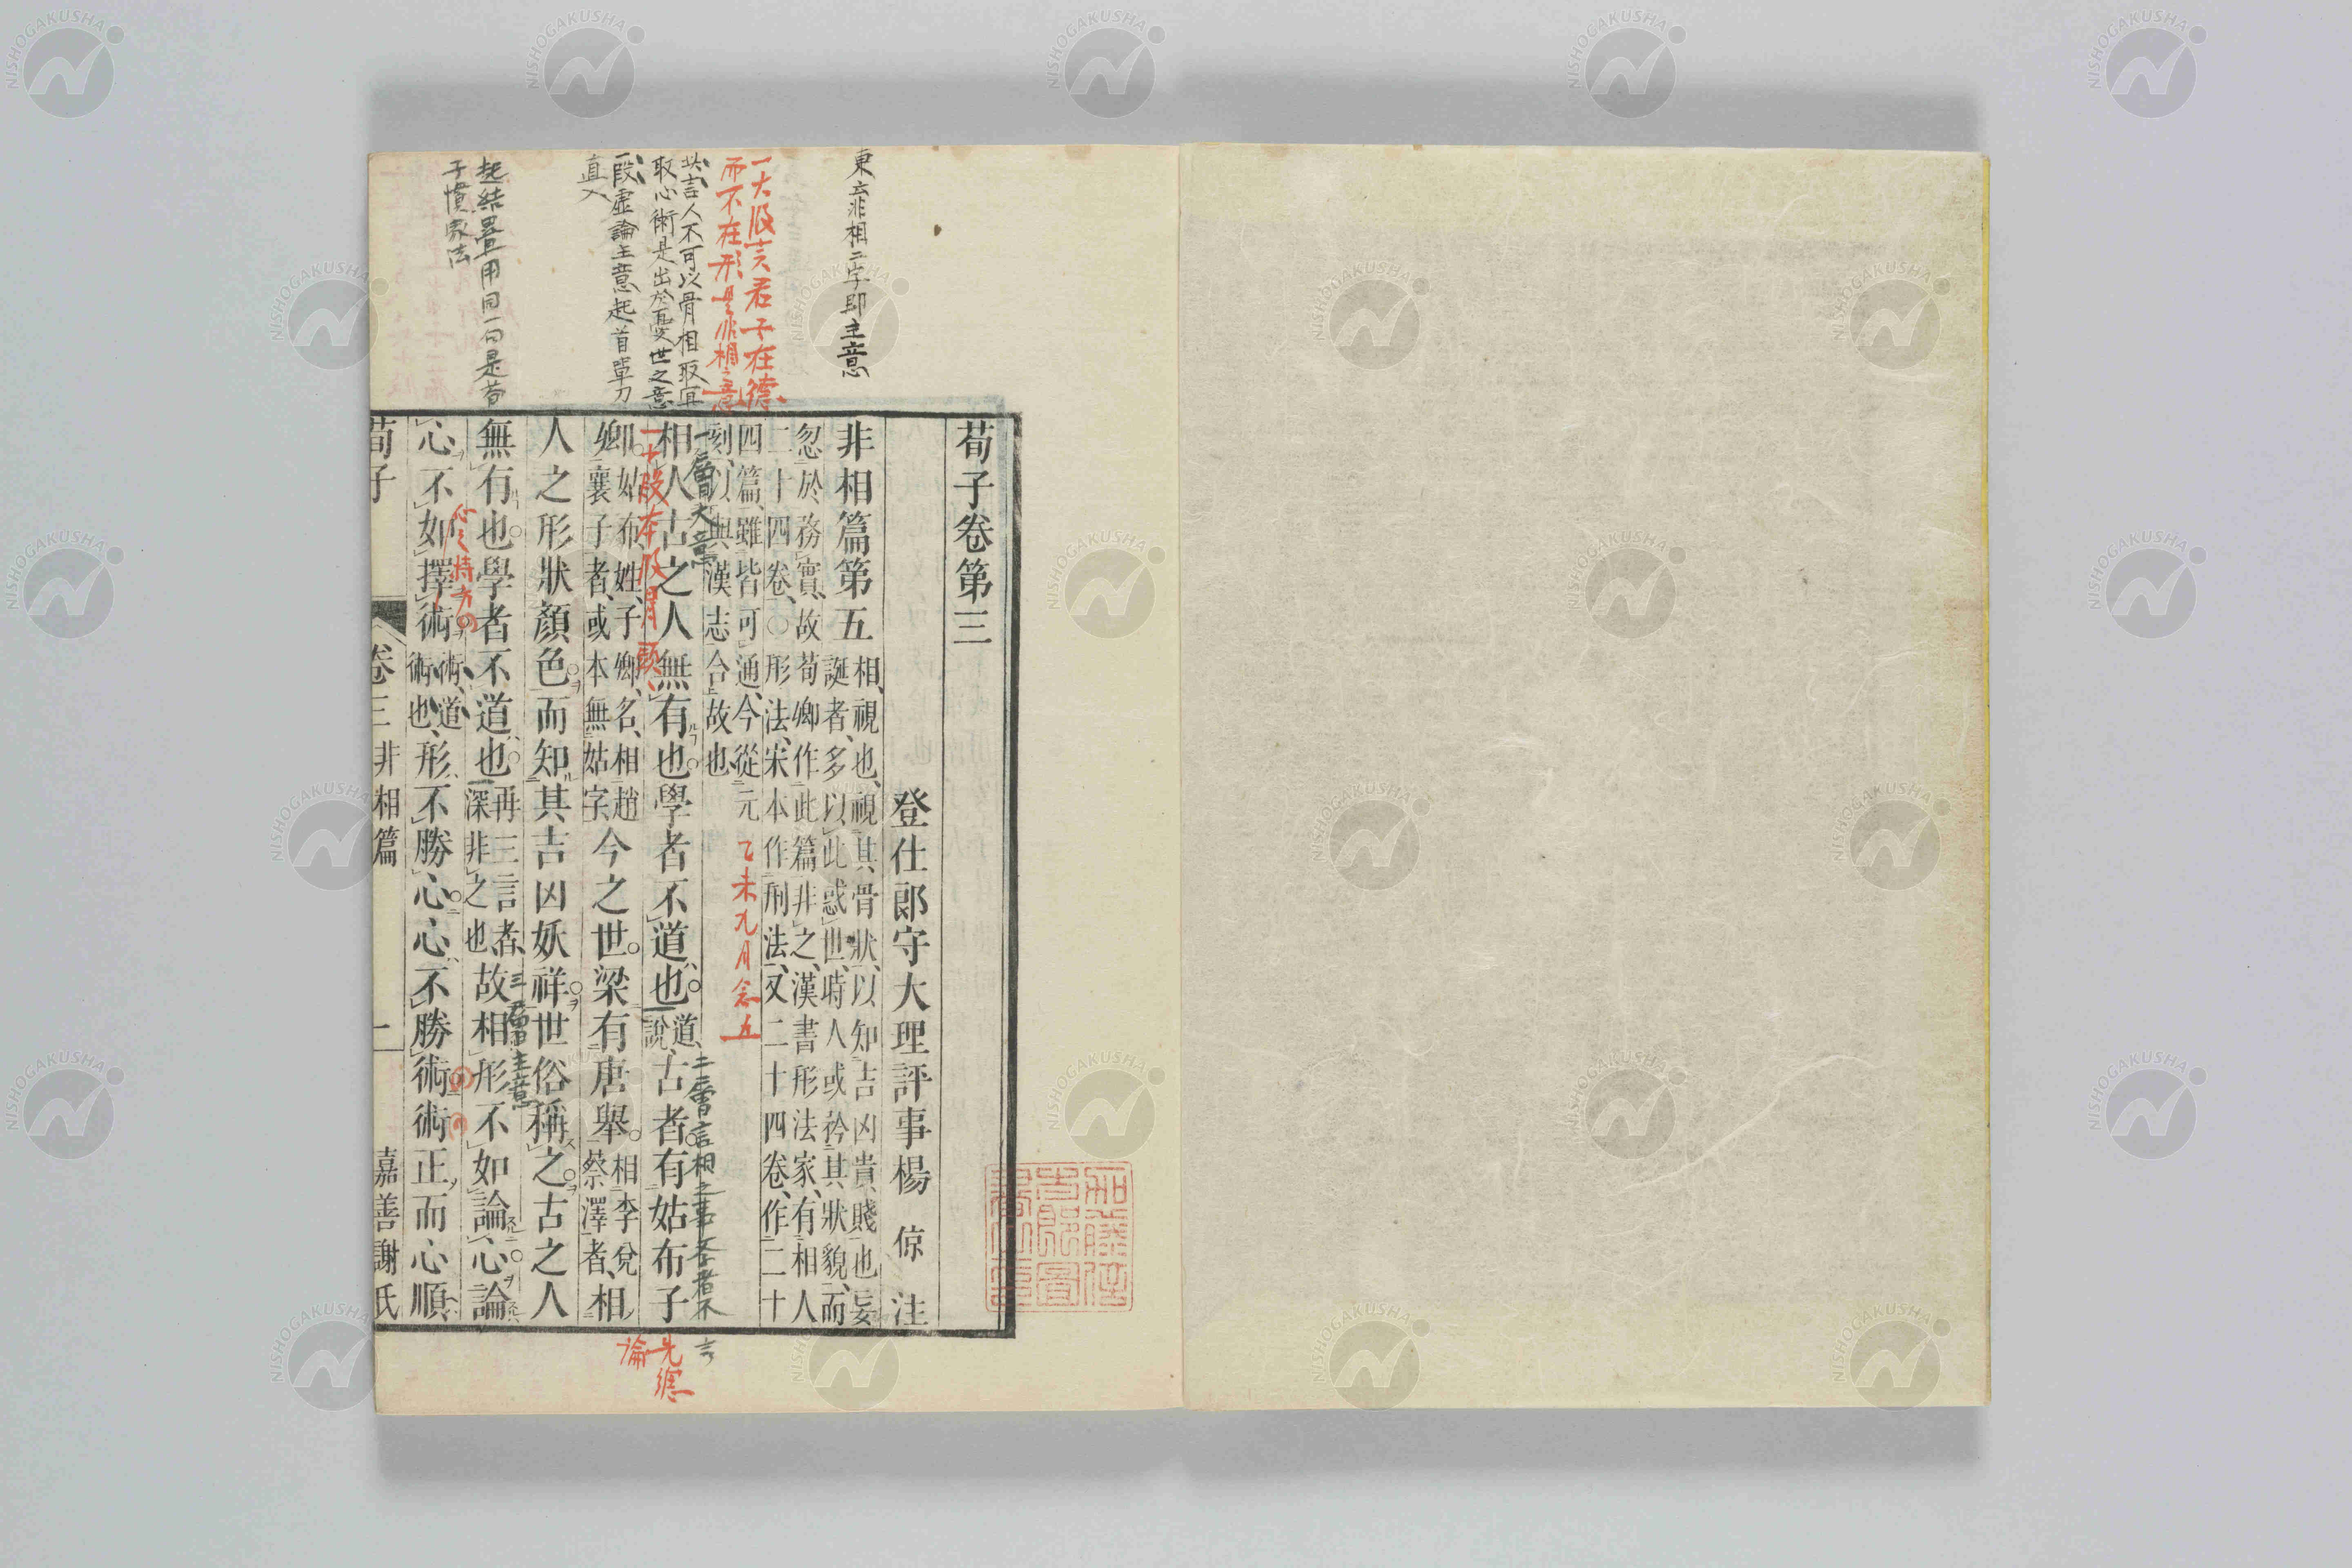 荀子卷第三
登仕郎守大理評事楊 倞 注
非相篇第五 相、視也、視其骨狀、以知吉凶貴賤也、妄
誕者、多以此惑世、時人或矜其狀貌、而
忽於務實、故荀卿作此篇非之、漢書形法家、有相人
二十四卷、○形法、宋本作刑法、又二十四卷、作二十
四篇、雖皆可通、今從元
刻、以與漢志合、故也
相人古之人無有也學者不道也 道、說、 古者有姑布子
卿 姑布姓、子卿名、相趙襄子者、或本無姑字、 今之世梁有唐舉 相李兌蔡澤者、 相
人之形狀顏色而知其吉凶妖祥世俗稱之古之人
無有也學者不道也 再三言者、深非之也、 故相形不如論心論
心不如擇術 術、道術也、 形不勝心心不勝術術正而心順
荀子
卷三 非相篇
一
嘉善謝氏
東云非相二字即主意
一大段言君子在德
而不在形是非相之意
共言人不可以骨相取宜
取心術是出於憂世之意
一段虛論主意起首單刀
直入
起結疊用同一句是荀
子慣家法
一層大意
乙未九月念五
二層言相之事 古者不
言
三層主意
先總
論
NISHOGAKUSHA